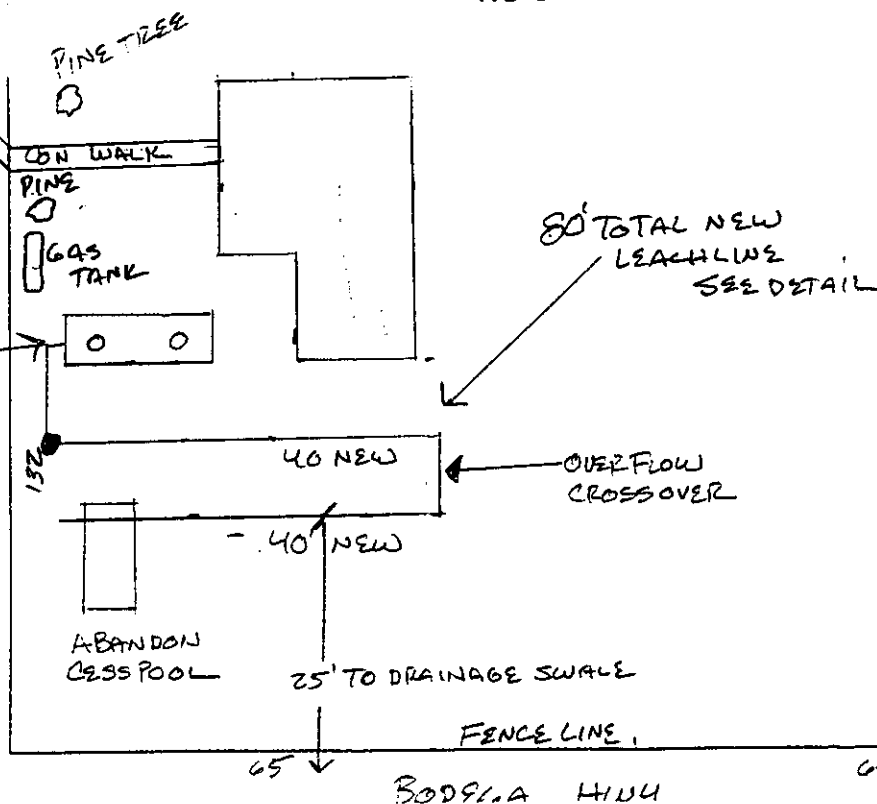 PINE TREE
CON WALK
PINE
GAS
TANK
80' TOTAL NEW
LEACHLINE
SEE DETAIL
132
40 NEW
OVERFLOW
CROSSOVER
40' NEW
ABANDON
CESSPOOL
25' TO DRAINAGE SWALE
FENCE LINE.
65
BODEGA